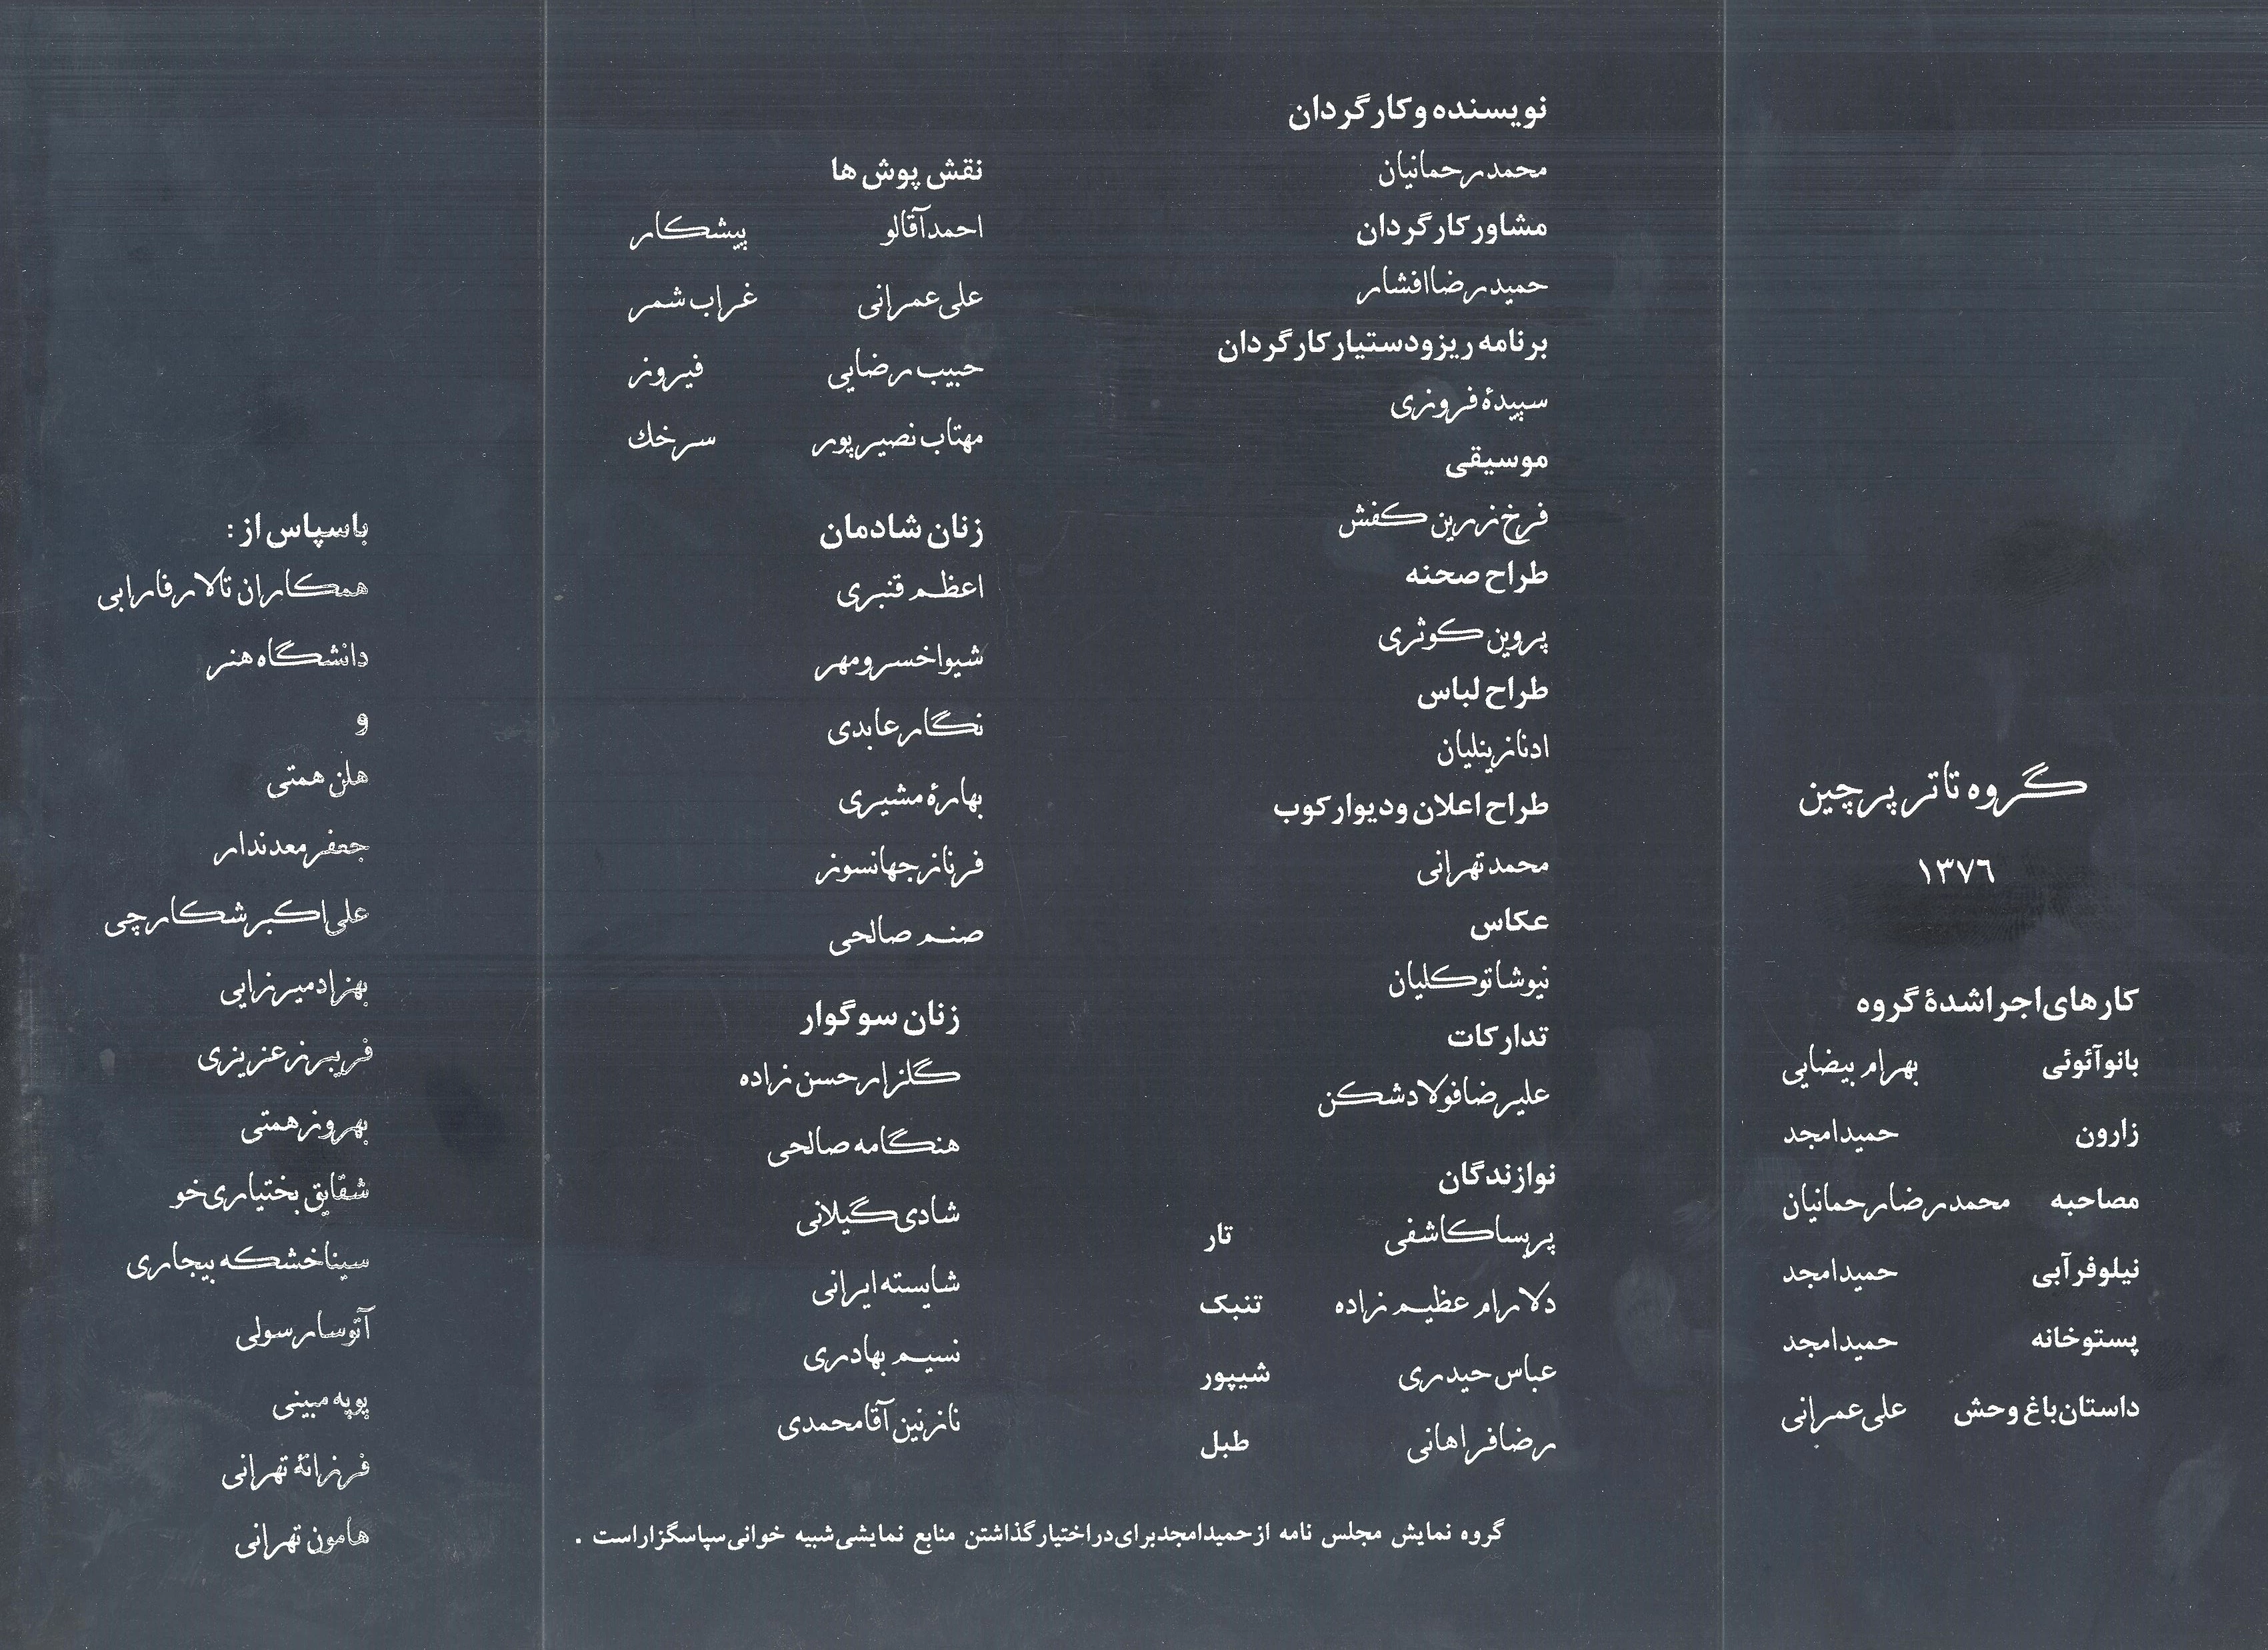 گروه تاتر پرچین
۱۳۷٦
کارهای اجرا شدهٔ گروه
بانو آئوئی بهرام بیضایی
زارون حمید امجد
مصاحبه محمدرضا رحمانیان
نیلوفر آبی حمید امجد
پستوخانه حمید امجد
داستان باغ وحش علی عمرانی
نویسنده و کارگردان
محمد رحمانیان
مشاور کارگردان
حمیدرضا افشار
برنامه ریز و دستیار کارگردان
سپیدهٔ فروزی
موسیقی
فرخ زرین کفش
طراح صحنه
پروین کوثری
طراح لباس
ادنا زینلیان
طراح اعلان و دیوارکوب
محمد تهرانی
عکاس
نیوشا توکلیان
تدارکات
علیرضا فولادشکن
نوازندگان
پریسا کاشفی تار
دلارام عظیم زاده تنبک
عباس حیدری شیپور
رضا فراهانی طبل
نقش پوش ها
احمد آقالو پیشکار
علی عمرانی غراب شمر
حبیب رضایی فیروز
مهتاب نصیرپور سرخك
زنان شادمان
اعظم قنبری
شیوا خسرومهر
نگار عابدی
بهارهٔ مشیری
فرناز جهانسوز
صنم صالحی
زنان سوگوار
گلزار حسن زاده
هنگامه صالحی
شادی گیلانی
شایسته ایرانی
نسیم بهادری
نازنین آقامحمدی
گروه نمایش مجلس نامه از حمید امجد برای در اختیار گذاشتن منابع نمایشی شبیه خوانی سپاسگزار است .
با سپاس از :
همکاران تالار فارابی
دانشگاه هنر
و
هلن همتی
جعفر معدندار
علی اکبر شکارچی
بهزاد میرزایی
فریبرز عزیزی
بهروز همتی
شقایق بختیاری خو
سینا خشکه بیجاری
آتوسا رسولی
پوپه مبینی
فرزانهٔ تهرانی
هامون تهرانی